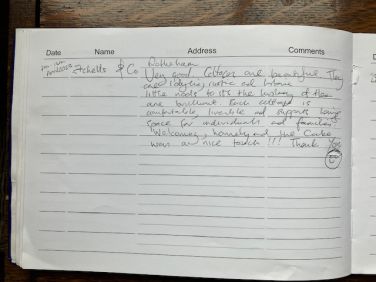 Date Name Address Comments
Etchells & Co Rotherham
Very good. Cottages are beautiful. They
are idyllic, rustic and
little nods to its the history of them
are brilliant. Each cottage is
comfortable, liveable and supports living
space for individuals and families.
Welcoming, homely and the Cake
was a nice touch!!! Thank You
D